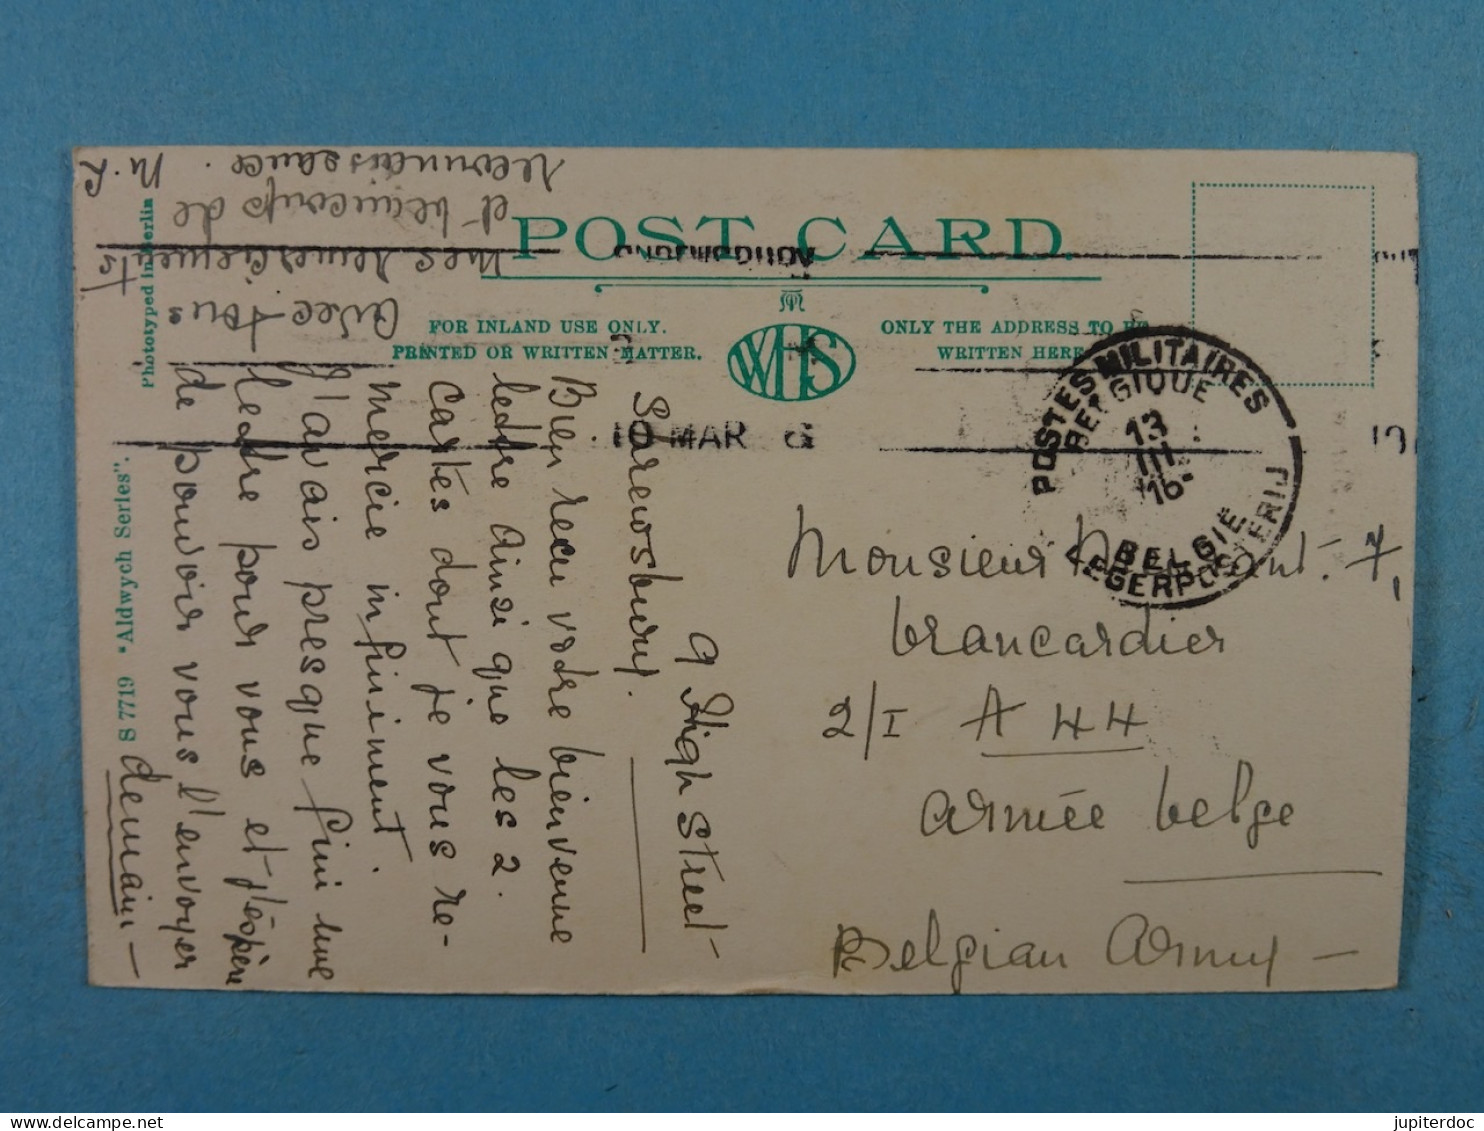 POST CARD.
FOR INLAND USE ONLY.
PRINTED OR WRITTEN MATTER.
WHS
ONLY THE ADDRESS TO BE
WRITTEN HERE
10 MAR
POSTES MILITAIRES
BELGIQUE
13
III
16
BELGIË
LEGERPOSTERIJ
Monsieur
brancardier
2/I A 44
armée belge
Belgian Army —
9 High Street
Shrewsbury.
Bien recu votre bienvenue
lettre ainsi que les 2
cartes dont je vous re-
mercie infiniment.
J'avais presque fini une
lettre pour vous et j'espère
de pouvoir vous l'envoyer
demain —
avec tous
mes remerciements
et beaucoup de
reconnaissance.
S 7719 "Aldwych Series".
Phototyped in Berlin
jupiterdoc